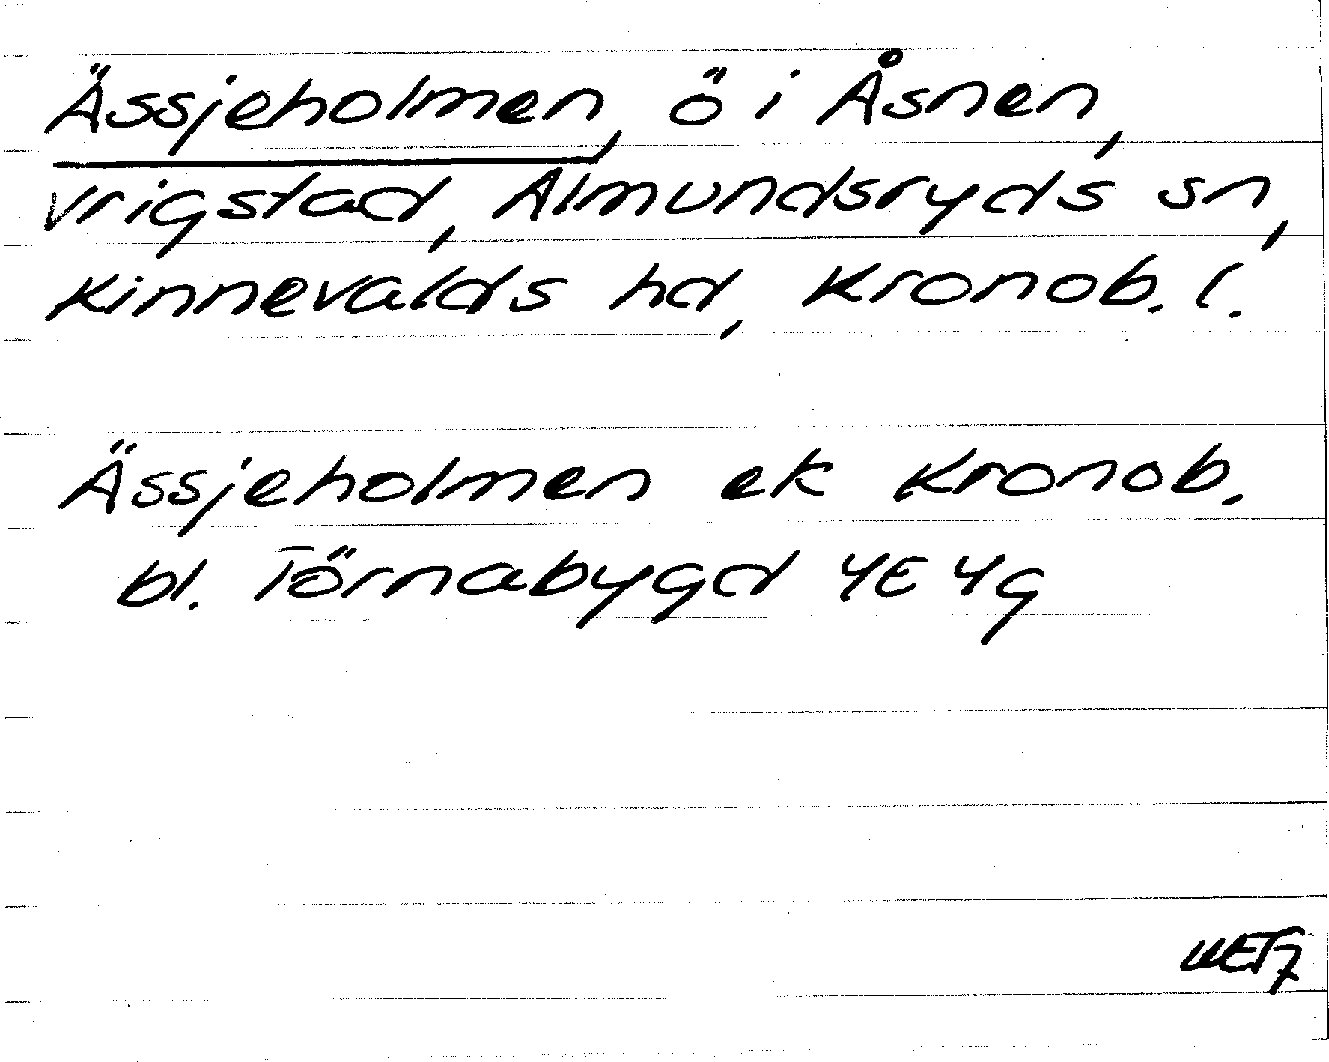 Ässjeholmen, ö i Åsnen,
Vrigstad, Almundsryds sn,
Kinnevalds hd, Kronob. l.
Ässjeholmen ek Kronob.
bl. Törnabygd 4E 4g